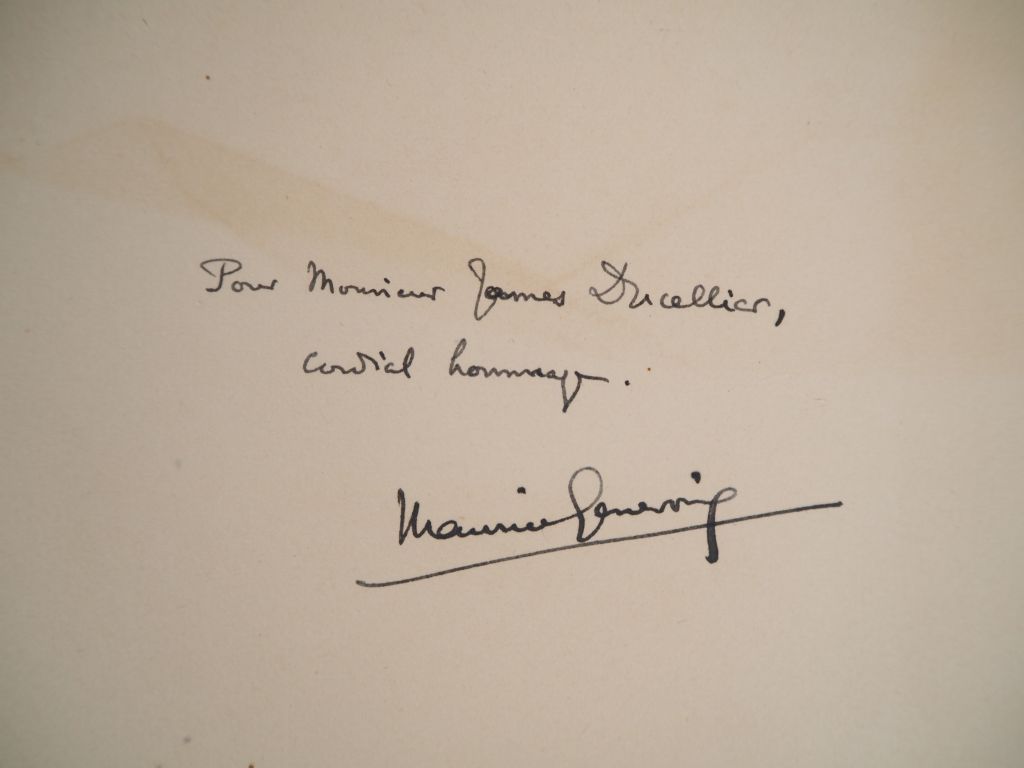 Pour Monsieur James Ducellier,
cordial hommage.
Maurice Genevoix